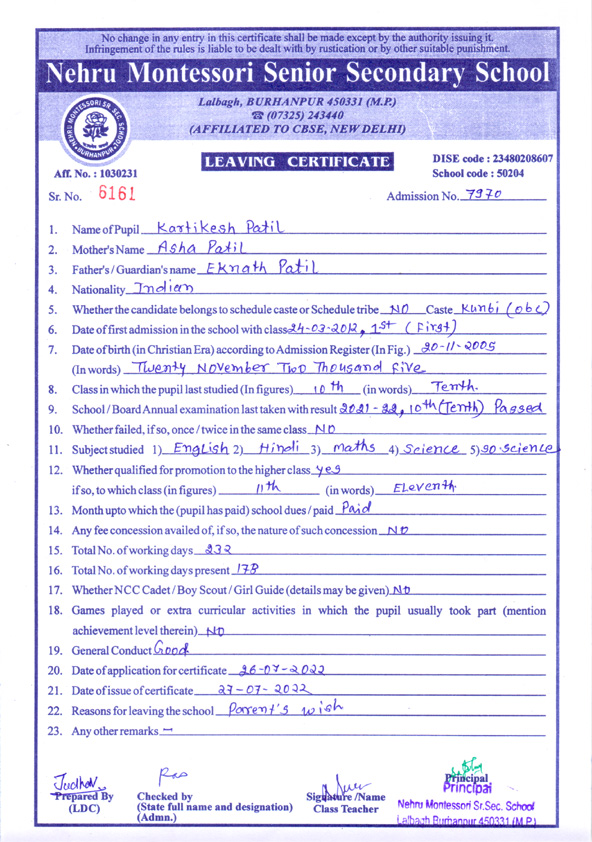 No change in any entry in this certificate shall be made except by the authority issuing it.
Infringement of the rules is liable to be dealt with by rustication or by other suitable punishment.
Nehru Montessori Senior Secondary School
Lalbagh, BURHANPUR 450331 (M.P.)
☎ (07325) 243440
(AFFILIATED TO CBSE, NEW DELHI)
NEHRU MONTESSORI SR. SEC. SCHOOL
BURHANPUR
LEAVING CERTIFICATE
DISE code : 23480208607
Aff. No. : 1030231 School code : 50204
Sr. No. 6161 Admission No. 7970
1. Name of Pupil Kartikesh Patil
2. Mother's Name Asha Patil
3. Father's / Guardian's name Eknath Patil
4. Nationality Indian
5. Whether the candidate belongs to schedule caste or Schedule tribe NO Caste Kunbi (obc)
6. Date of first admission in the school with class 24-03-2012, 1st (First)
7. Date of birth (in Christian Era) according to Admission Register (In Fig.) 20-11-2005
(In words) Twenty November Two Thousand Five
8. Class in which the pupil last studied (In figures) 10th (in words) Tenth.
9. School / Board Annual examination last taken with result 2021-22, 10th (Tenth) Passed
10. Whether failed, if so, once / twice in the same class NO
11. Subject studied 1) English 2) Hindi 3) maths 4) Science 5) so.science
12. Whether qualified for promotion to the higher class yes
if so, to which class (in figures) 11th (in words) Eleventh.
13. Month upto which the (pupil has paid) school dues / paid Paid
14. Any fee concession availed of, if so, the nature of such concession NO
15. Total No. of working days 232
16. Total No. of working days present 178
17. Whether NCC Cadet / Boy Scout / Girl Guide (details may be given) NO
18. Games played or extra curricular activities in which the pupil usually took part (mention
achievement level therein) NO
19. General Conduct Good
20. Date of application for certificate 26-07-2022
21. Date of issue of certificate 27-07-2022
22. Reasons for leaving the school Parent's wish
23. Any other remarks —
Prepared By
(LDC)
Checked by
(State full name and designation)
(Admn.)
Signature /Name
Class Teacher
Principal
Principal
Nehru Montessori Sr.Sec. School
Lalbagh Burhanpur 450331 (M.P.)